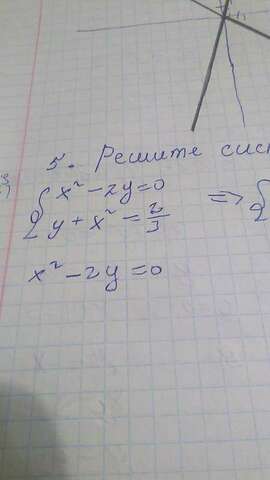 5. Решите сист
{ x² - 2y = 0
y + x² = 2/3 => {
x² - 2y = 0